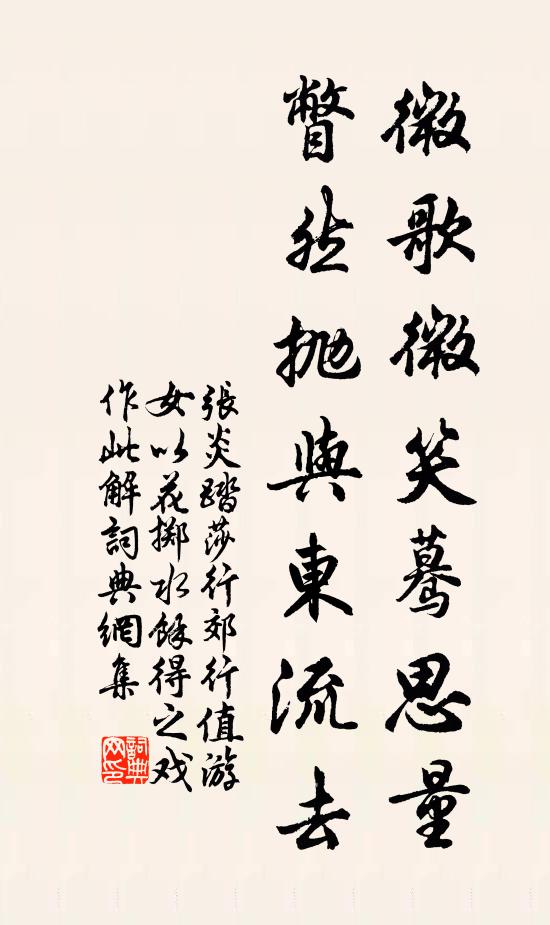 微歌微笑驀思量
瞥然抛與東流去
張炎踏莎行郊行值游
女以花擲水餘得之戏
作此解詞典網集
詞典网印